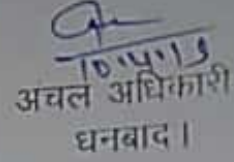 10.4.19
अंचल अधिकारी
धनबाद।